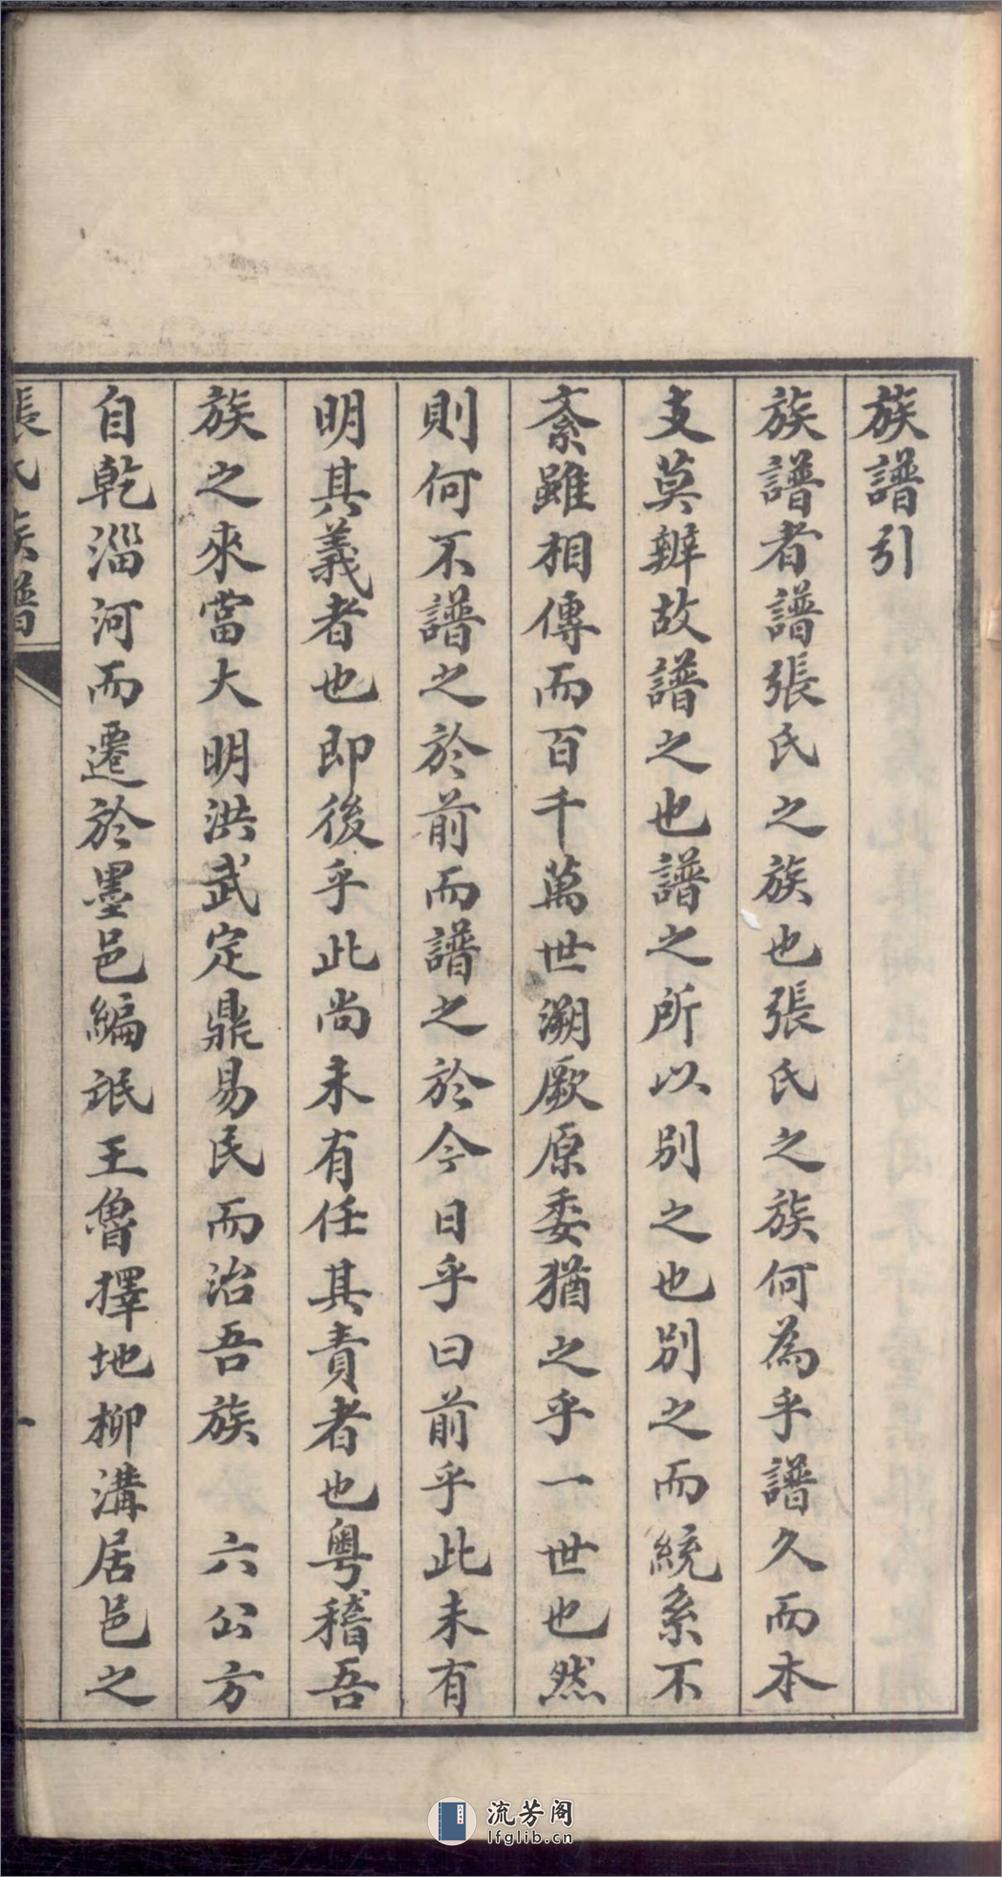 族譜引
族譜者譜張氏之族也張氏之族何為乎譜久而本
支莫辨故譜之也譜之所以別之也別之而統系不
紊雖相傳而百千萬世溯厥原委猶之乎一世也然
則何不譜之於前而譜之於今日乎曰前乎此未有
明其義者也即後乎此尚未有任其責者也粵稽吾
族之來當大明洪武定鼎易民而治吾族　六公方
自乾淄河而遷於墨邑編氓王魯擇地柳溝居邑之
張氏族譜
一
流芳阁
lfglib.cn